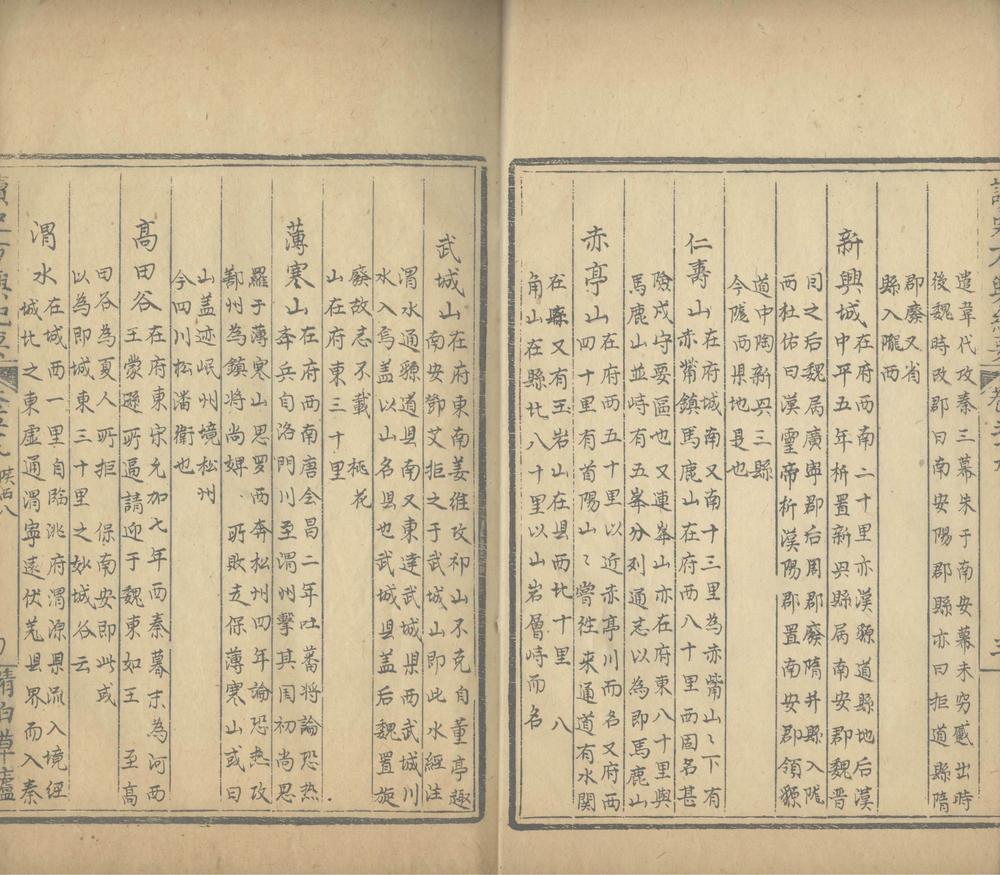 遣韋代攻秦三幕朱于南安幕末穷蹙出時
後魏時改郡曰南安陽郡縣亦曰拒道縣隋
郡廢又省
縣入隴西
新興城在府西南二十里亦漢豲道縣地后漢
中平五年析置新兴縣屙南安郡魏晋
因之后魏屙廣寧郡后周郡廢隋并縣入陇
西杜佑曰漢靈帝析漢陽郡置南安郡領豲
道中陶新兴三縣
今陇西県地是也
仁壽山在府城南又南十三里為赤觜山〻下有
赤觜鎮馬鹿山在府西八十里西固名甚
險戍守要區也又連峯山亦在府東八十里與
馬鹿山並峙有五峯分列通志以為即馬鹿山
赤亭山在府西五十里以近赤亭川而名又府西
四十里有首陽山〻嘗徃来通道有水関
在縣又有玉岩山在县西北十里 八
角山在縣北八十里以山岩層峙而名
武城山在府東南姜維攻祁山不克自董亭趣
南安鄧艾拒之于武城山即此水經注
渭水通豲道县南又東逹武城県西武城川
水入焉盖以山名县也武城县盖后魏置旋
廢故志不載 桃花
山在府東三十里
薄寒山在府西南唐会昌二年吐蕃将論恐热
奔兵自洛門川至渭州擊其囯初尚思
羅于薄寒山思罗西奔松州四年論恐热攻
鄯州為鎮將尚婢 所敗走保薄寒山或曰
山盖迹岷州境松州
今四川松潘衛也
高田谷在府東宋允加七年西秦暮末為河西
王蒙遜所逼請迎于魏東如王 至高
田谷為夏人所拒 保南安即此或
以為即城東三十里之妙城谷云
渭水在城西一里自臨洮府渭源県流入境經
城北之東虚通渭寧遠伏羌县界而入秦